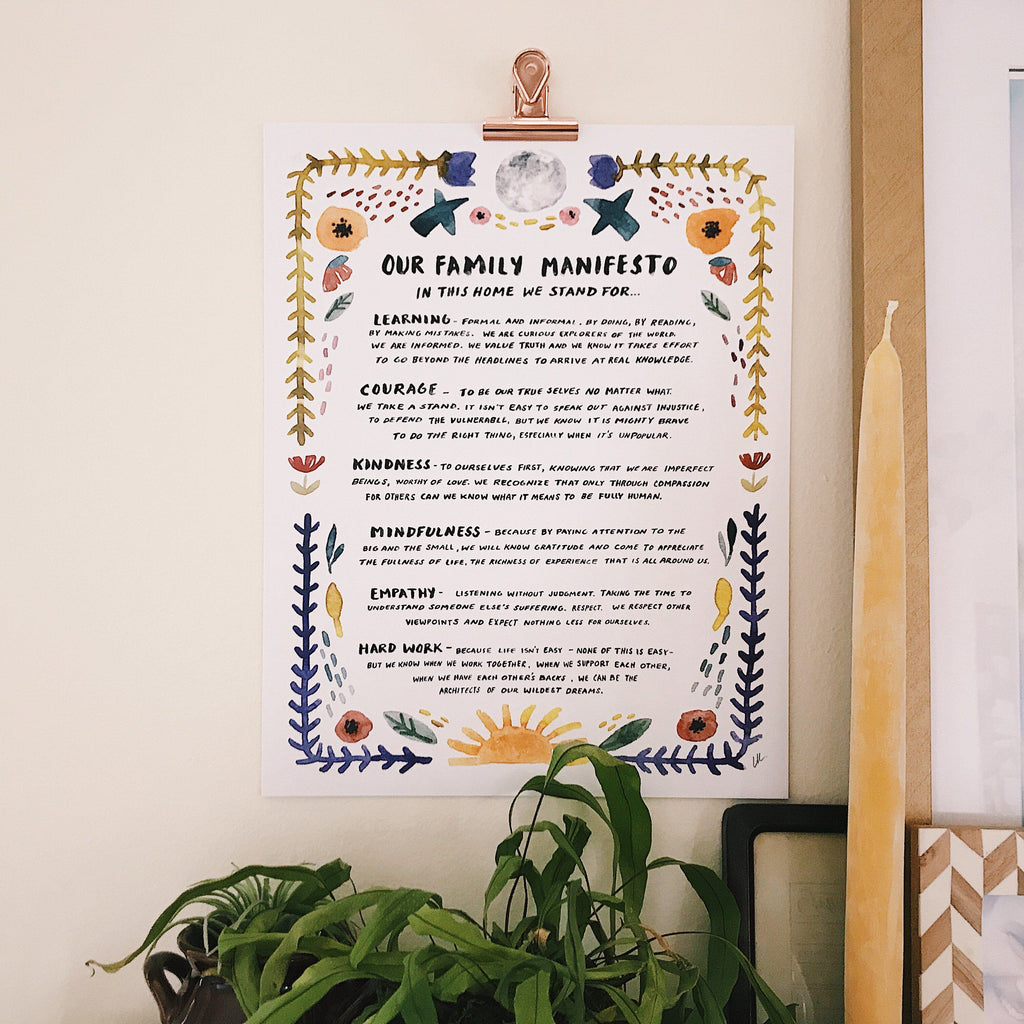 OUR FAMILY MANIFESTO
IN THIS HOME WE STAND FOR...
LEARNING - FORMAL AND INFORMAL. BY DOING, BY READING,
BY MAKING MISTAKES. WE ARE CURIOUS EXPLORERS OF THE WORLD.
WE ARE INFORMED. WE VALUE TRUTH AND WE KNOW IT TAKES EFFORT
TO GO BEYOND THE HEADLINES TO ARRIVE AT REAL KNOWLEDGE.
COURAGE - TO BE OUR TRUE SELVES NO MATTER WHAT.
WE TAKE A STAND. IT ISN'T EASY TO SPEAK OUT AGAINST INJUSTICE,
TO DEFEND THE VULNERABLE, BUT WE KNOW IT IS MIGHTY BRAVE
TO DO THE RIGHT THING, ESPECIALLY WHEN IT'S UNPOPULAR.
KINDNESS - TO OURSELVES FIRST, KNOWING THAT WE ARE IMPERFECT
BEINGS, WORTHY OF LOVE. WE RECOGNIZE THAT ONLY THROUGH COMPASSION
FOR OTHERS CAN WE KNOW WHAT IT MEANS TO BE FULLY HUMAN.
MINDFULNESS - BECAUSE BY PAYING ATTENTION TO THE
BIG AND THE SMALL, WE WILL KNOW GRATITUDE AND COME TO APPRECIATE
THE FULLNESS OF LIFE, THE RICHNESS OF EXPERIENCE THAT IS ALL AROUND US.
EMPATHY - LISTENING WITHOUT JUDGMENT. TAKING THE TIME TO
UNDERSTAND SOMEONE ELSE'S SUFFERING. RESPECT. WE RESPECT OTHER
VIEWPOINTS AND EXPECT NOTHING LESS FOR OURSELVES.
HARD WORK - BECAUSE LIFE ISN'T EASY - NONE OF THIS IS EASY -
BUT WE KNOW WHEN WE WORK TOGETHER, WHEN WE SUPPORT EACH OTHER,
WHEN WE HAVE EACH OTHER'S BACKS, WE CAN BE THE
ARCHITECTS OF OUR WILDEST DREAMS.